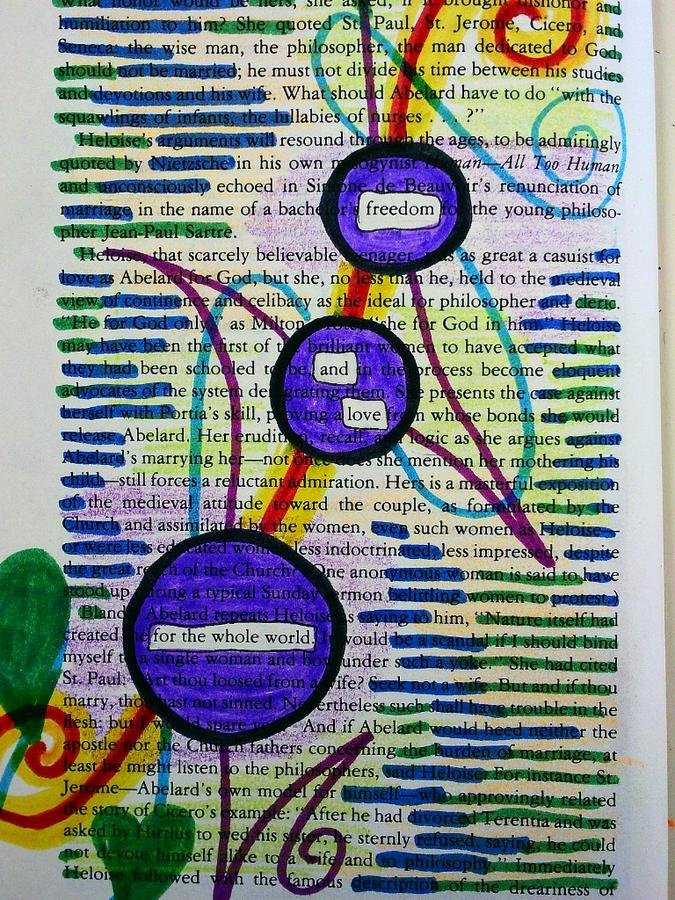 what honor would be hers, she asked, if it brought dishonor and
humiliation to him? She quoted St. Paul, St. Jerome, Cicero, and
Seneca: the wise man, the philosopher, the man dedicated to God,
should not be married; he must not divide his time between his studies
and devotions and his wife. What should Abelard have to do "with the
squawlings of infants, the lullabies of nurses . . . ?"
Heloise's arguments will resound through the ages, to be admiringly
quoted by Nietzsche in his own misogynist Human—All Too Human
and unconsciously echoed in Simone de Beauvoir's renunciation of
marriage in the name of a bachelor's freedom for the young philoso-
pher Jean-Paul Sartre.
Heloise, that scarcely believable teenager, was as great a casuist for
love as Abelard for God, but she, no less than he, held to the medieval
view of continence and celibacy as the ideal for philosopher and cleric.
"He for God only," as Milton "she for God in him." Heloise
may have been the first of the brilliant women to have accepted what
they had been schooled to be, and in the process become eloquent
advocates of the system denigrating them. She presents the case against
herself with Portia's skill, proving a love from whose bonds she would
release Abelard. Her erudition, recall, and logic as she argues against
Abelard's marrying her—not once does she mention her mothering his
child—still forces a reluctant admiration. Hers is a masterful exposition
of the medieval attitude toward the couple, as formulated by the
Church and assimilated by the women, even such women as Heloise—
or were less educated women less indoctrinated, less impressed, despite
the great reach of the Church? (One anonymous woman is said to have
stood up during a typical Sunday sermon belittling women to protest.)
Bland Abelard repeats Heloise as saying to him, "Nature itself had
created me for the whole world. It would be a scandal if I should bind
myself to a single woman and bow under such a yoke." She had cited
St. Paul: "Art thou loosed from a wife? Seek not a wife. But and if thou
marry, thou hast not sinned. Nevertheless such shall have trouble in the
flesh: but I would spare you." And if Abelard would heed neither the
apostle nor the Church fathers concerning the burden of marriage, at
least he might listen to the philosophers, said Heloise. For instance St.
Jerome—Abelard's own model for himself—who approvingly related
the story of Cicero's example: "After he had divorced Terentia and was
asked by Hirtius to wed his sister, he sternly refused, saying, he could
not devote himself alike to a wife and to philosophy." Immediately
Heloise followed with the famous description of the dreariness of